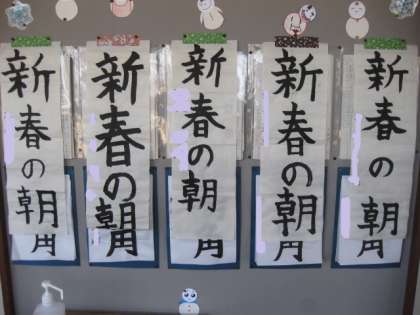 新春の朝
新春の朝
新春の朝
新春の朝
新春の朝